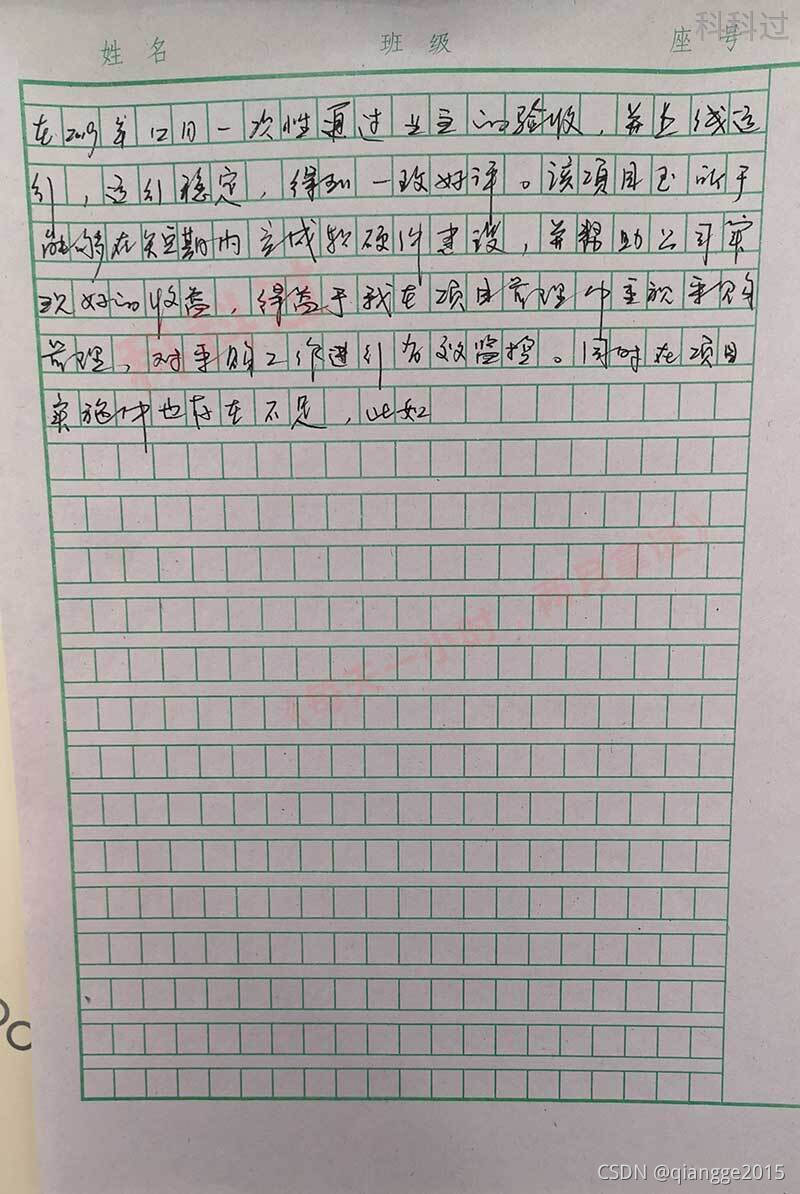 科科过
姓名 班级 座号
在2019年12月一次性通过业主的验收，并上线运
行，运行稳定，得到一致好评。该项目之所于
能够在短期内完成软硬件建设，并帮助公司实
现好的收益，得益于我在项目管理中重视采购
管理，对采购工作进行有效监控。同时在项目
实施中也存在不足，比如
《每天一小时，两月拿证》
CSDN @qiangge2015